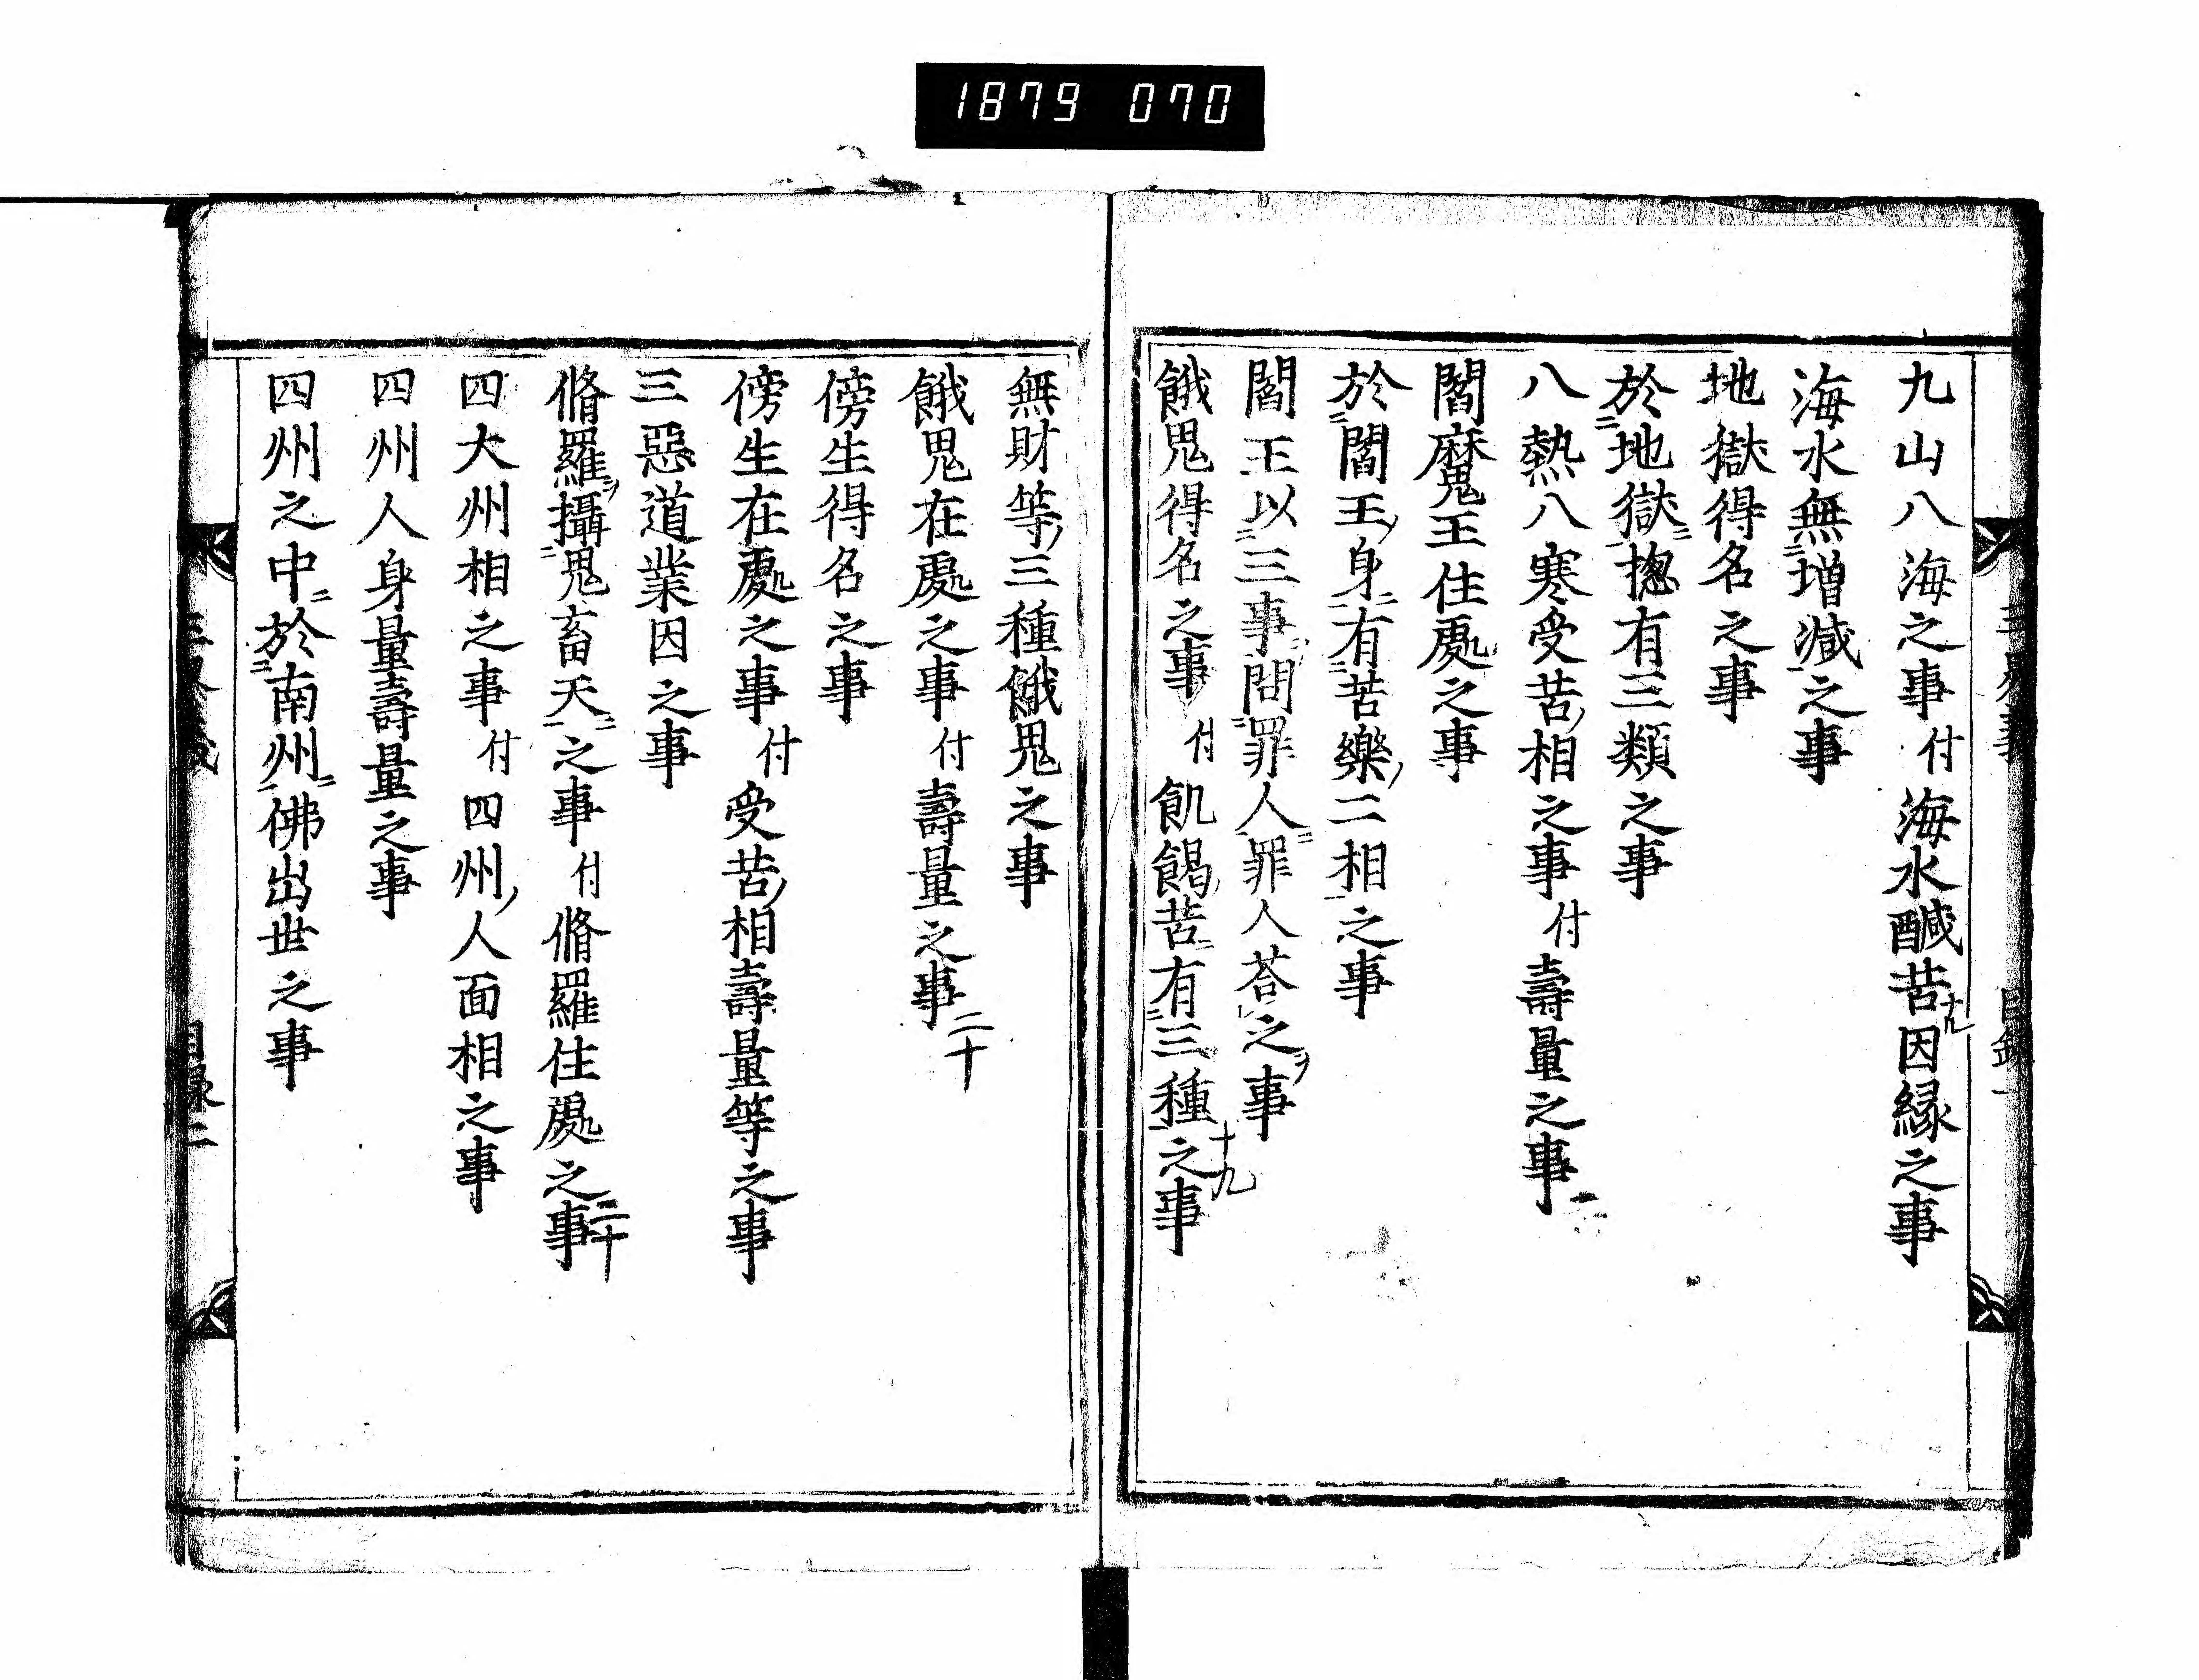 1879 070
九山八海之事 付 海水醎苦因縁之事
十九
海水無増减之事
地獄得名之事
於地獄揔有三類之事
八熱八寒受苦相之事 付 壽量之事
閻魔王住處之事
於閻王身有苦樂二相之事
閻王以三事問罪人罪人荅之事
餓鬼得名之事 付 飢餲苦有三種之事
十九
無財等三種餓鬼之事
餓鬼在處之事 付 壽量之事
二十
傍生得名之事
傍生在處之事 付 受苦相壽量等之事
三惡道業因之事
脩羅攝鬼畜天之事 付 脩羅住處之事
二十
四大州相之事 付 四州人面相之事
四州人身量壽量之事
四州之中於南州佛出世之事
目録二